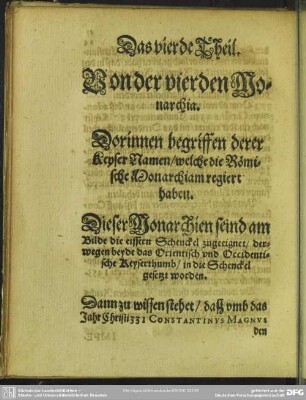 Das vierde Theil.
Von der vierden Mo-
narchia.
Dorinnen begriffen derer
Keyser Namen/welche die Römi-
sche Monarchiam regiert
haben.
Dieser Monarchien seind am
Bilde die eissern Schenckel zugeeignet/ der-
wegen beyde das Orientisch vnd Occidenti-
sche Keyserthumb/ in die Schenckel
gesetzt worden.
Dann zu wissen stehet/ daß vmb das
Jahr Christi 331 CONSTANTINVS MAGNVS
den
DFG